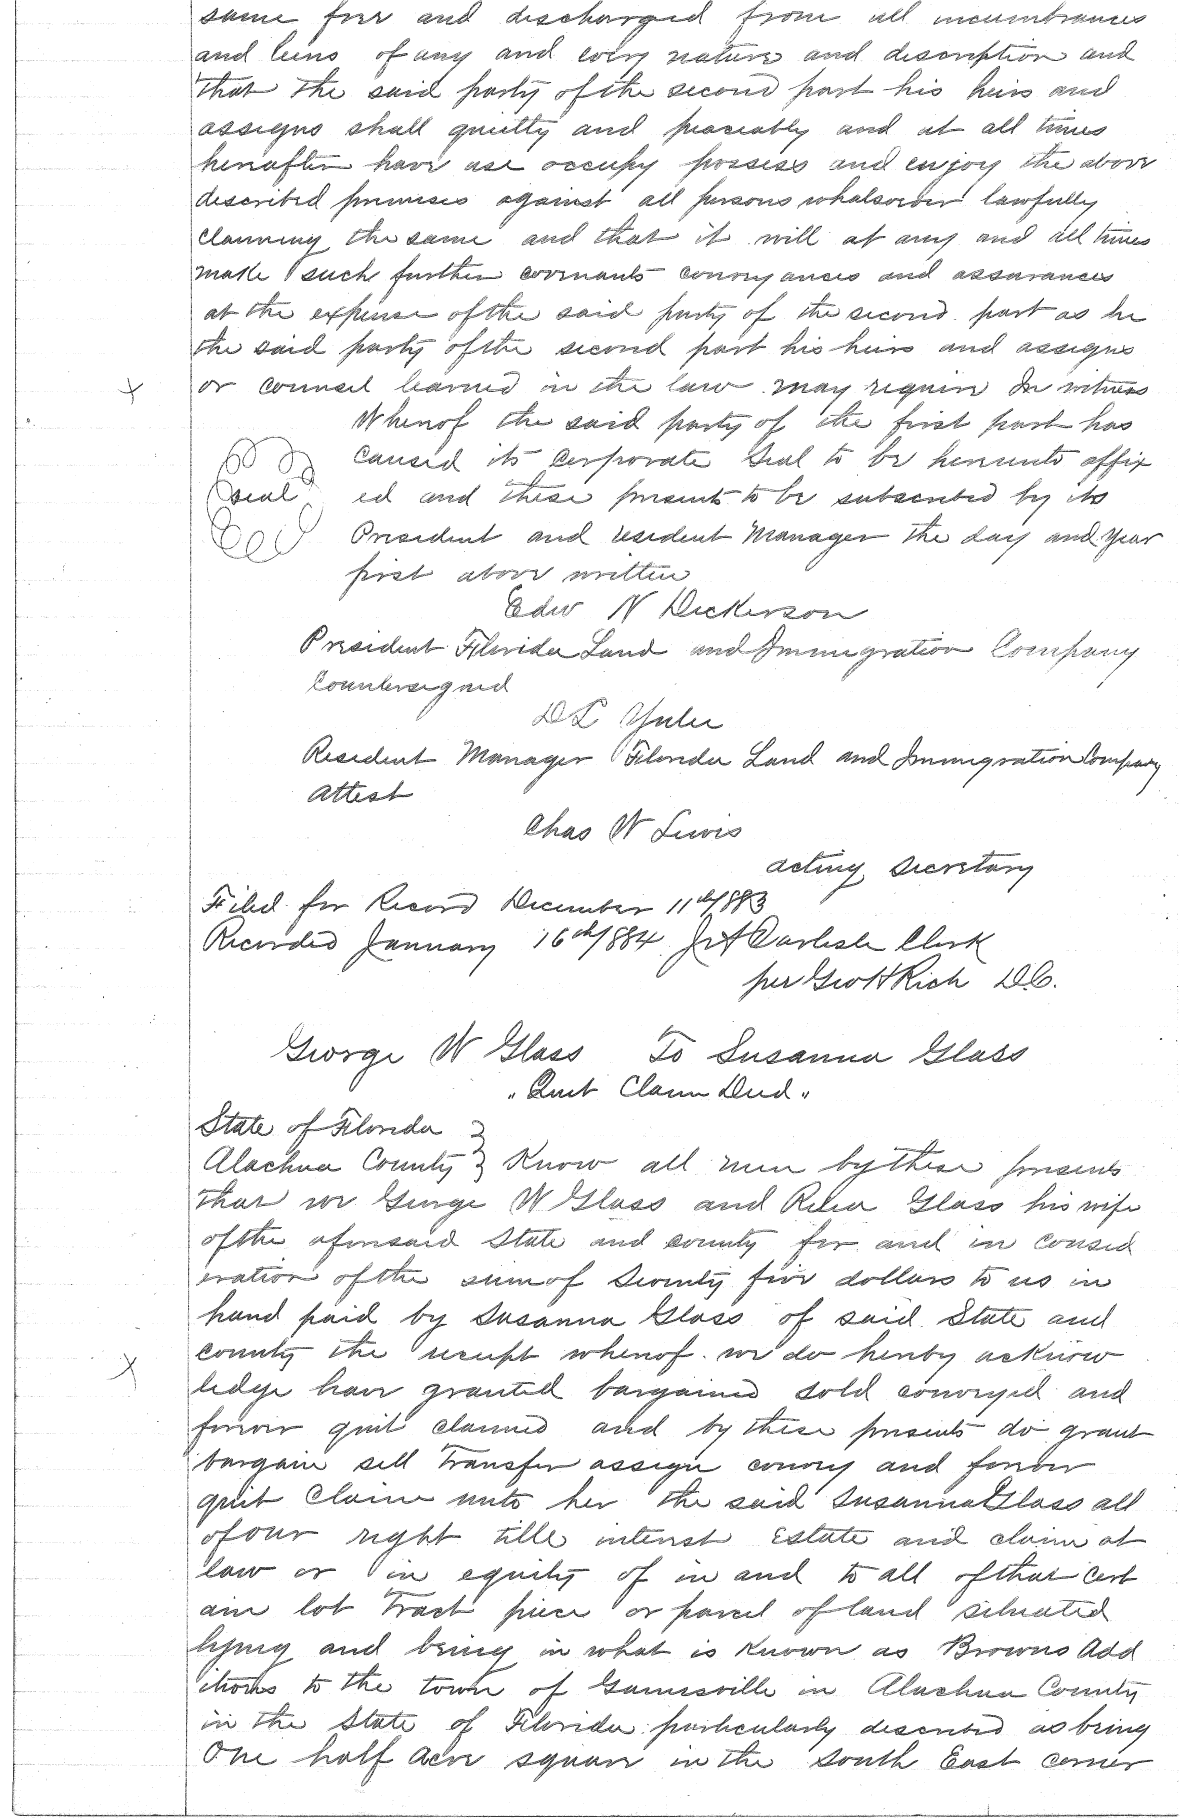 same free and discharged from all incumbrances
and liens of any and every nature and description and
that the said party of the second part his heirs and
assigns shall quietly and peaceably and at all times
hereafter have use occupy possess and enjoy the above
described premises against all persons whatsoever lawfully
claiming the same and that it will at any and all times
make such further covenants conveyances and assurances
at the expense of the said party of the second part as he
the said party of the second part his heirs and assigns
x or counsel learned in the law may require In witness
Whereof the said party of the first part has
caused its corporate Seal to be hereunto affix
seal ed and these presents to be subscribed by its
President and resident Manager the day and year
first above written
Edw N Dickerson
President Florida Land and Immigration Company
Countersigned
D L Yulee
Resident Manager Florida Land and Immigration Company
Attest
Chas W Lewis
acting Secretary
Filed for Record December 11th 1883
Recorded January 16th 1884 J A Carlisle Clerk
per Geo H Rich D.C.
George W Glass To Susanna Glass
"Quit Claim Deed"
State of Florida }
Alachua County } Know all men by these presents
that we George W Glass and Glass his wife
of the aforesaid State and county for and in consid
eration of the sum of Seventy five dollars to us in
hand paid by Susanna Glass of said State and
county the receipt whereof we do hereby acknow
x ledge have granted bargained sold conveyed and
forever quit claimed and by these presents do grant
bargain sell transfer assign convey and forever
quit Claim unto her the said Susanna Glass all
of our right title interest Estate and claim at
law or in equity of in and to all of that cert
ain lot tract piece or parcel of land situated
lying and being in what is known as Browns Add
itions to the town of Gainesville in Alachua County
in the State of Florida particularly described as being
One half Acre square in the South East corner